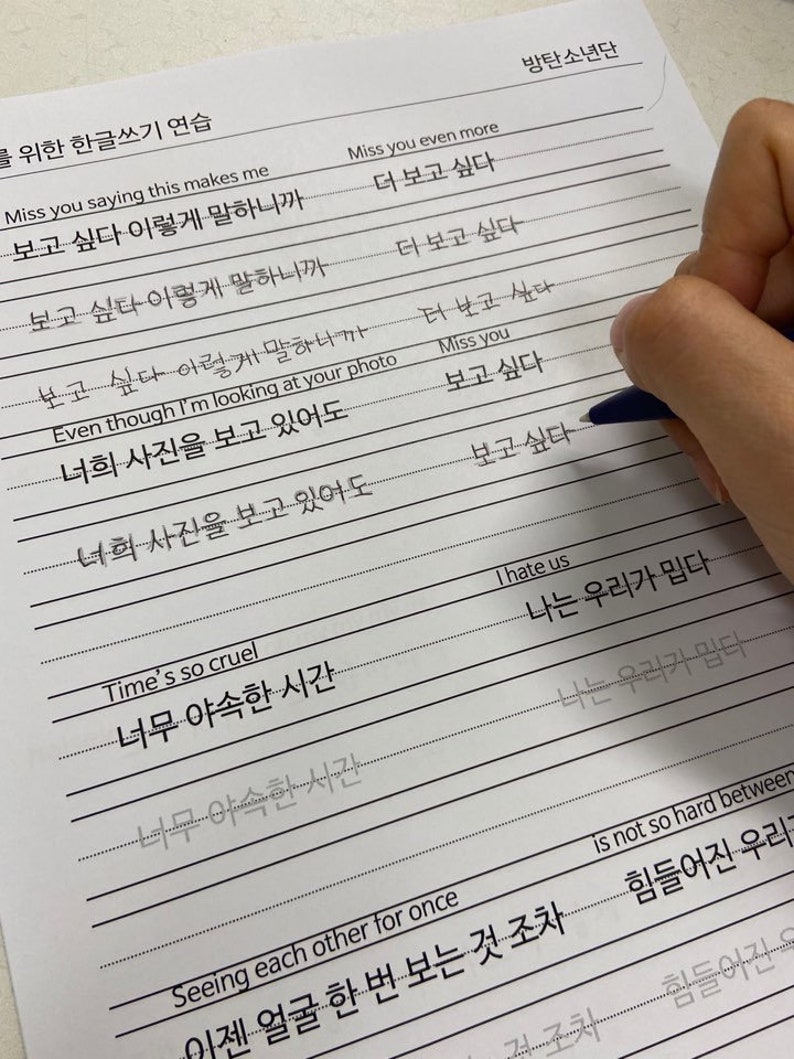 방탄소년단
를 위한 한글쓰기 연습
Miss you saying this makes me Miss you even more
보고 싶다 이렇게 말하니까 더 보고 싶다
보고 싶다 이렇게 말하니까 더 보고 싶다
보고 싶다 이렇게 말하니까 더 보고 싶다
Even though I'm looking at your photo Miss you
너희 사진을 보고 있어도 보고 싶다
너희 사진을 보고 있어도 보고 싶다
Time's so cruel I hate us
너무 야속한 시간 나는 우리가 밉다
너무 야속한 시간 나는 우리가 밉다
Seeing each other for once is not so hard between
이젠 얼굴 한 번 보는 것 조차 힘들어진 우리
것 조차 힘들어진